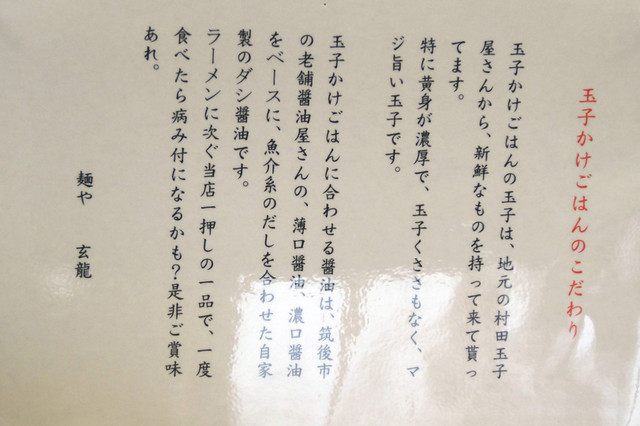 玉子かけごはんのこだわり
玉子かけごはんの玉子は、地元の村田玉子
屋さんから、新鮮なものを持って来て貰っ
てます。
特に黄身が濃厚で、玉子くささもなく、マ
ジ旨い玉子です。
玉子かけごはんに合わせる醤油は、筑後市
の老舗醤油屋さんの、薄口醤油、濃口醤油
をベースに、魚介系のだしを合わせた自家
製のダシ醤油です。
ラーメンに次ぐ当店一押しの一品で、一度
食べたら病み付になるかも？是非ご賞味
あれ。
麺や 玄龍